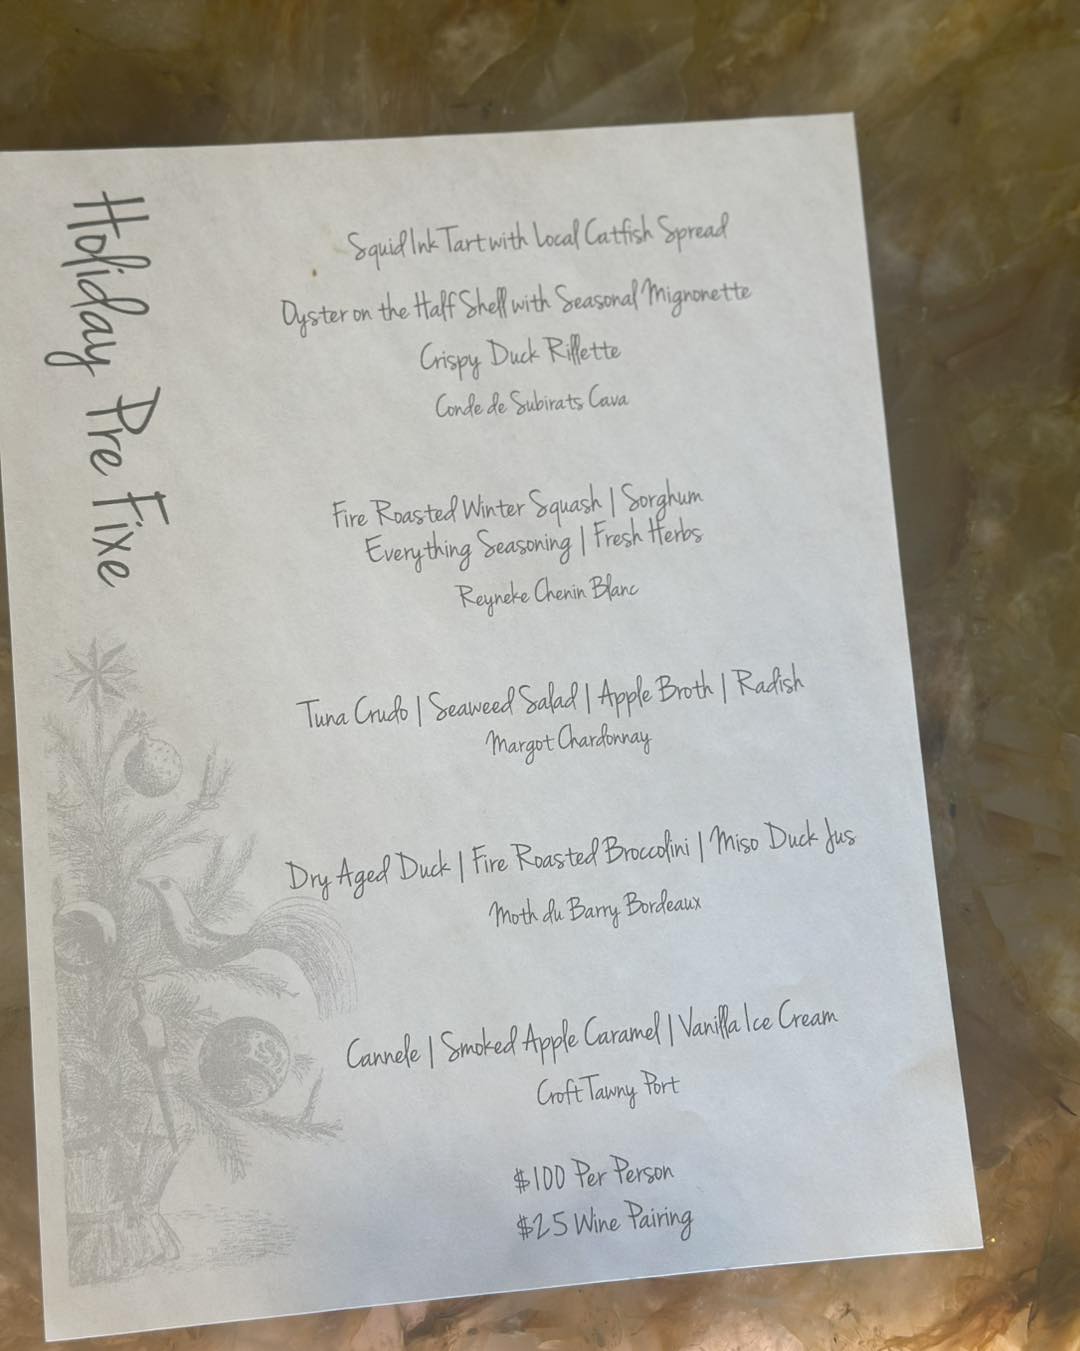 Holiday Pre Fixe
Squid Ink Tart with Local Catfish Spread
Oyster on the Half Shell with Seasonal Mignonette
Crispy Duck Rillette
Conde de Subirats Cava
Fire Roasted Winter Squash | Sorghum
Everything Seasoning | Fresh Herbs
Reyneke Chenin Blanc
Tuna Crudo | Seaweed Salad | Apple Broth | Radish
Margot Chardonnay
Dry Aged Duck | Fire Roasted Broccolini | Miso Duck Jus
Moth du Barry Bordeaux
Cannele | Smoked Apple Caramel | Vanilla Ice Cream
Croft Tawny Port
$100 Per Person
$25 Wine Pairing